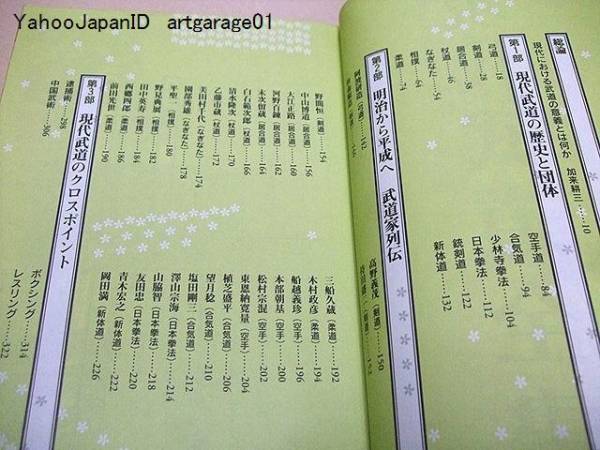 YahooJapanID artgarage01
総論
現代における武道の意義とは何か 加来耕三……10
第1部 現代武道の歴史と団体
弓道……18
剣道……24
居合道……38
杖道……46
なぎなた……54
相撲……64
柔道……74
空手道……84
合気道……94
少林寺拳法……104
日本拳法……112
銃剣道……122
新体道……132
第2部 明治から平成へ 武道家列伝
阿波研造(弓道)
高野義茂(剣道)……150
野間恒(剣道)……154
中山博道(居合道)……156
大江正路(居合道)……160
河野百錬(居合道)……162
末次留蔵(居合道)……164
白石範次郎(杖道)……166
清水隆次(杖道)……170
乙藤市蔵(杖道)……172
美田村千代(なぎなた)……174
園部秀雄(なぎなた)……178
平聖一(相撲)……180
野見典展(相撲)……182
田中英寿(相撲)……184
西郷四郎(柔道)……186
前田光世(柔道)……190
三船久蔵(柔道)……192
木村政彦(柔道)……194
船越義珍(空手)……196
本部朝基(空手)……200
松村宗棍(空手)……202
東恩納寛量(空手)……204
植芝盛平(合気道)……206
望月稔(合気道)……210
塩田剛三(合気道)……212
澤山宗海(日本拳法)……214
山脇智(日本拳法)……218
友田忠(日本拳法)……220
青木宏之(新体道)……222
岡田満(新体道)……226
第3部 現代武道のクロスポイント
逮捕術……298
中国武術……306
ボクシング……314
レスリング……322